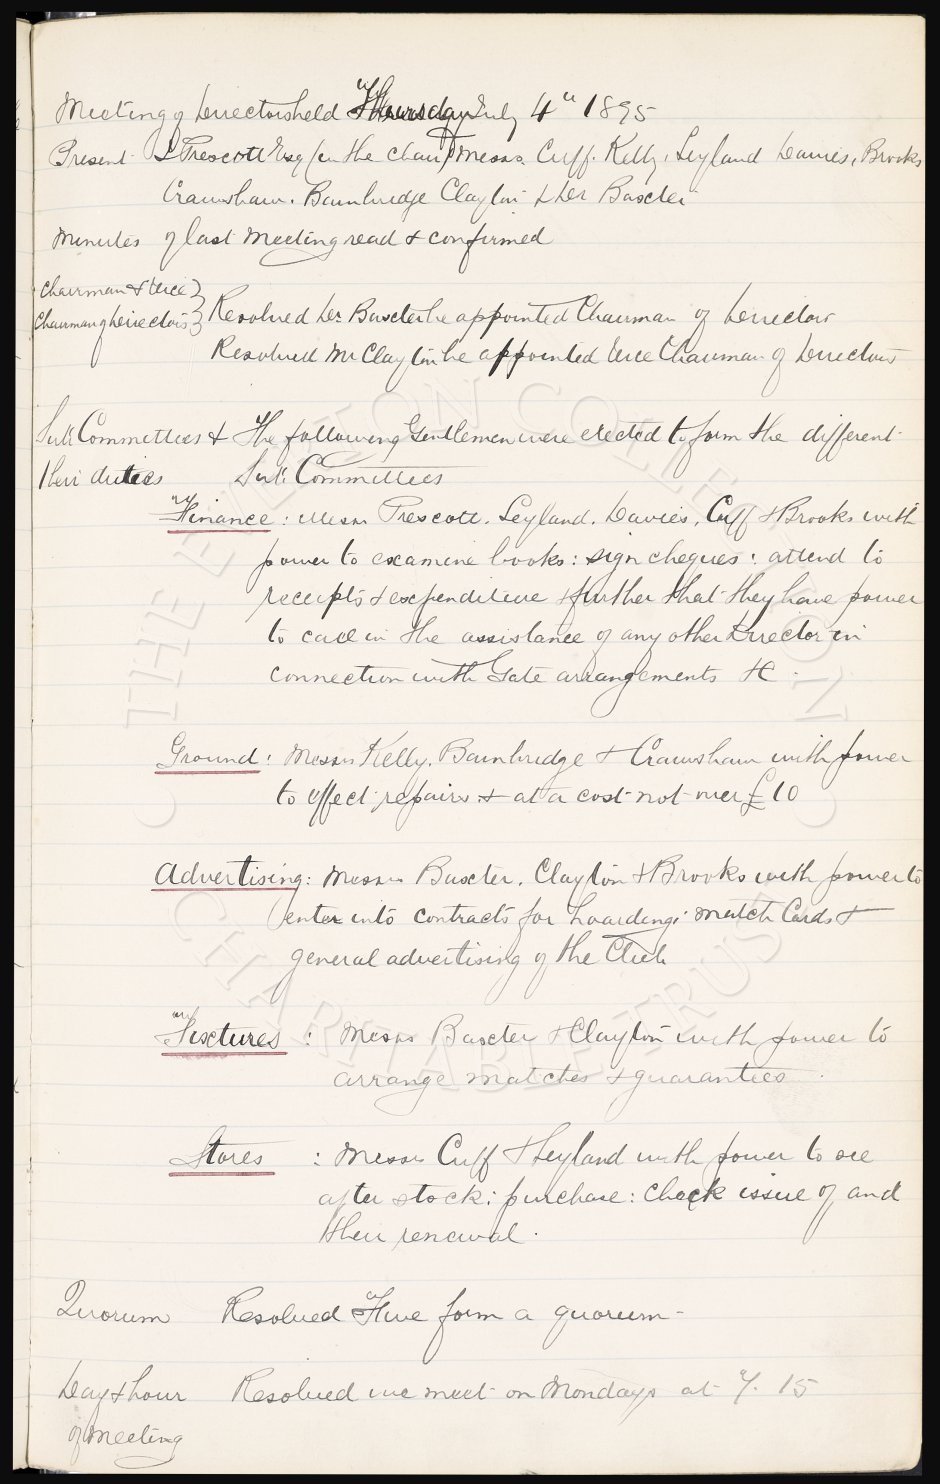 Meeting of Directors held Thursday July 4th 1895
Present L Prescott Esq (in the chair) Messrs Cuff. Kelly, Leyland Davies, Brooks
Crawshaw. Bainbridge Clayton & Dr Baxter
Minutes of last Meeting read & confirmed
Chairman & Vice
Chairman of Directors
Resolved Dr. Baxter be appointed Chairman of Directors
Resolved Mr Clayton be appointed Vice Chairman of Directors
Sub Committees & The following Gentlemen were elected to form the different
their duties Sub. Committees
Finance: Messrs Prescott. Leyland. Davies, Cuff & Brooks with
power to examine books: sign cheques: attend to
receipts & expenditure & further that they have power
to call in the assistance of any other Director in
connection with Gate arrangements &c.
Ground: Messrs Kelly. Bainbridge & Crawshaw with power
to effect repairs & at a cost not over £10
Advertising: Messrs Baxter. Clayton & Brooks with power to
enter into contracts for hoardings: match Cards &
general advertising of the Club
Fixtures: Messrs Baxter & Clayton with power to
arrange matches & guarantees.
Stores: Messrs Cuff & Leyland with power to see
after stock: purchase: check issue of, and
their renewal.
Quorum Resolved Five form a quorum
Day & hour Resolved we meet on Mondays at 7.15
of Meeting
© THE EVERTON COLLECTION
CHARITABLE TRUST